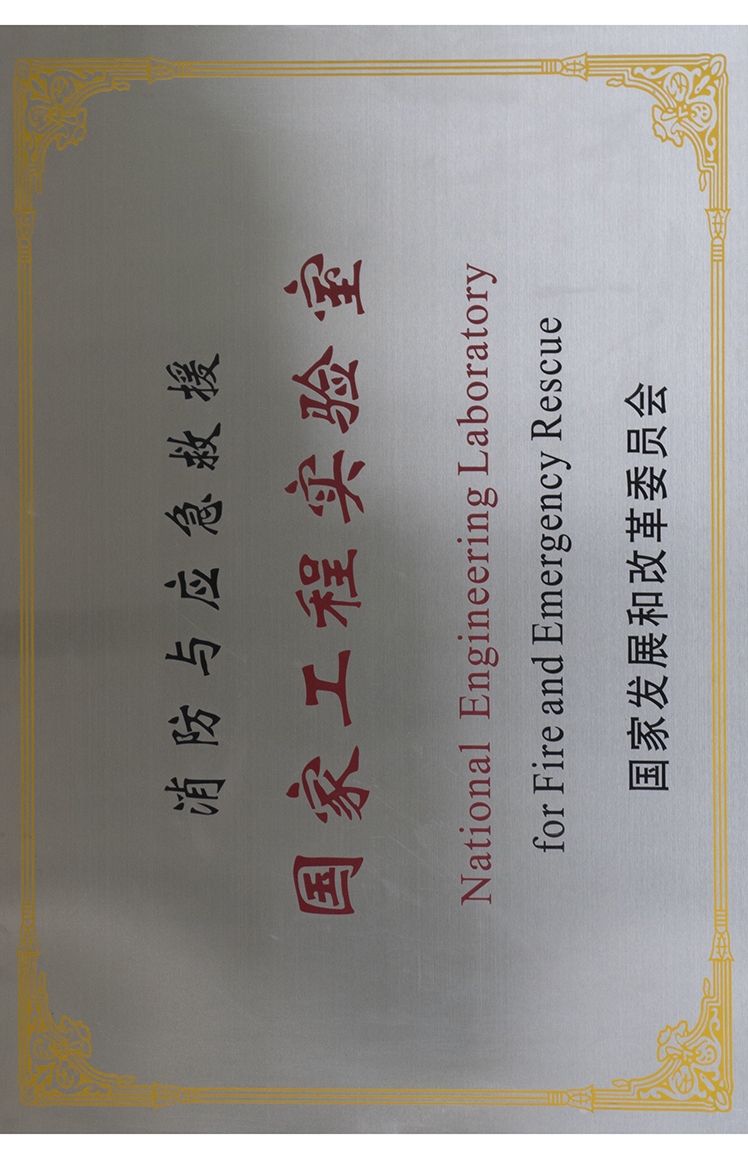 消防与应急救援
国家工程实验室
National Engineering Laboratory
for Fire and Emergency Rescue
国家发展和改革委员会